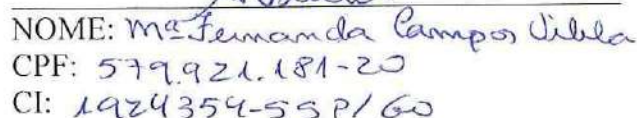 NOME: Mª Fernanda Campos Vilela
CPF: 579.921.181-20
CI: 1924354-SSP/GO